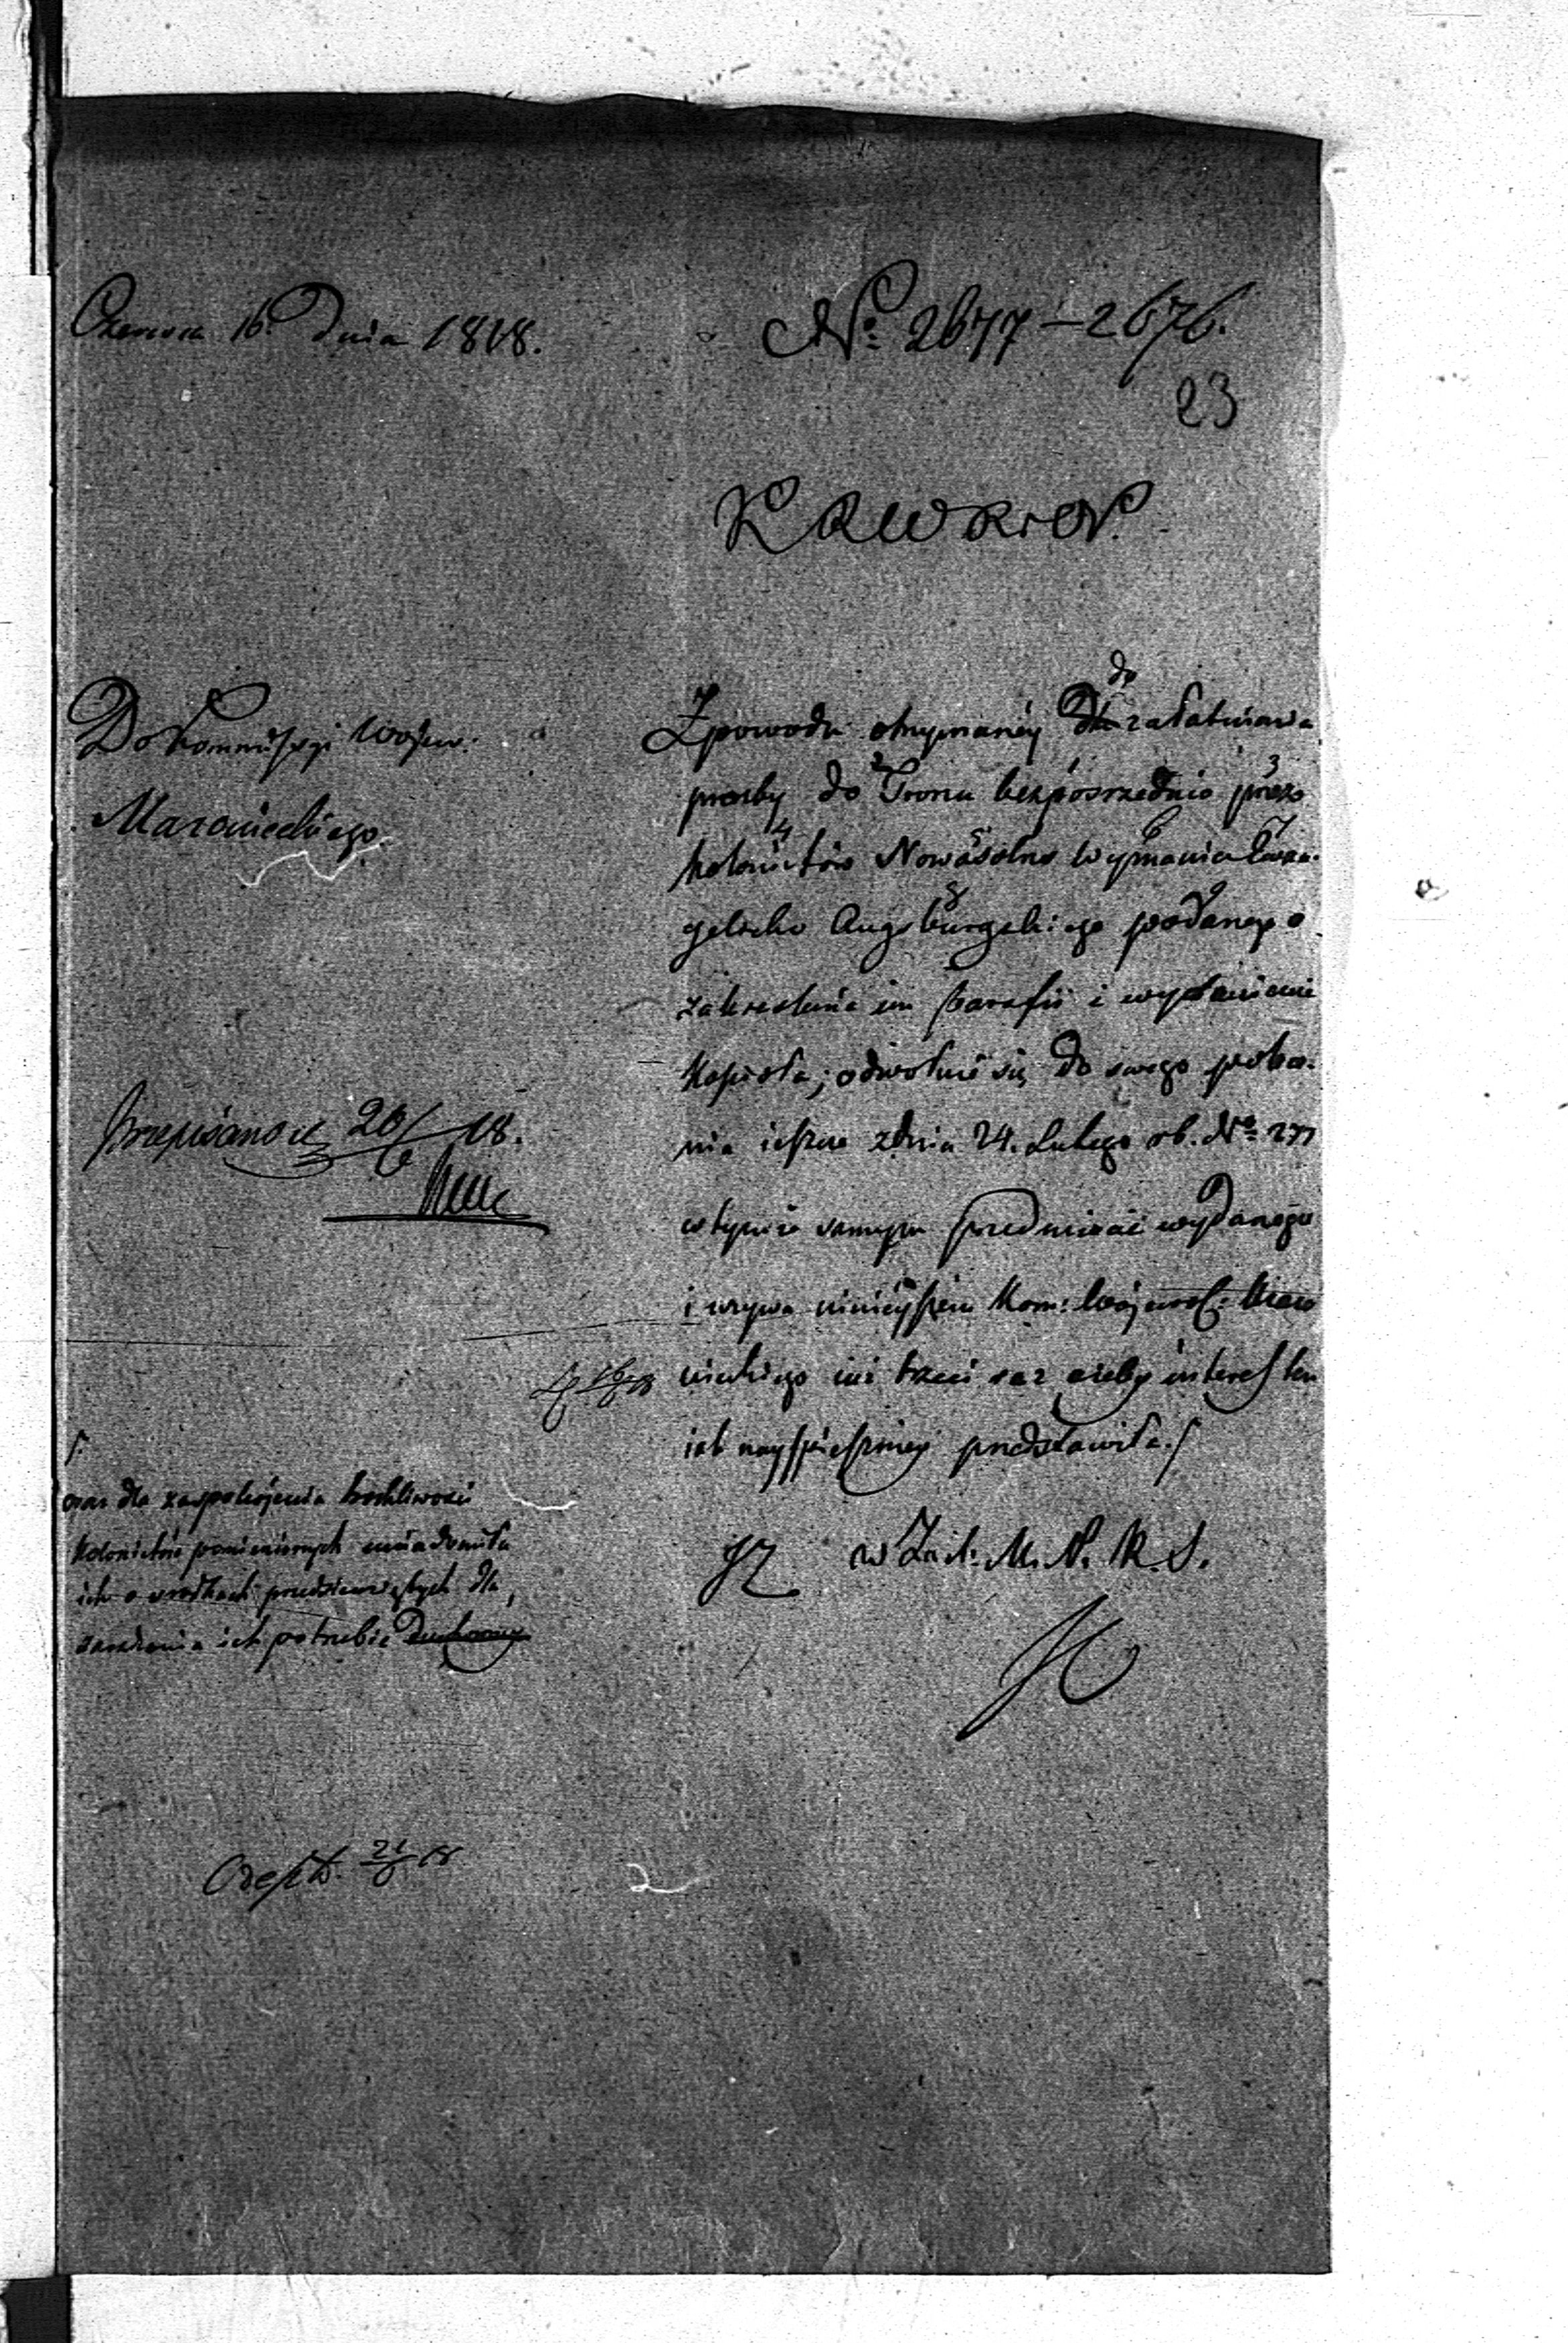 Czerwca 16. Dnia 1818.
№ 2677–2676.
23
K R W R i O P.
Do Kommissyi Wojew:
Mazowieckiego.
Z powodu otrzymanéy do załatwienia
prośby do Tronu bezpośrzednio przez
kolonistów Nowosolno Wyznania Ewan-
gelicko Augsburgskiego podanéy o
zakreślenie im Parafii i
odwołuie się do swego
nia ieszcze z dnia 24. Lutego rb. № 277
w tymże samym przedmiocie wydanego
i wzywa ninieyszem Kom: Wojewod: Mazo
wieckiego iuż trzeci raz ażeby interes ten
iak nayspieszniey przedstawiła./
Przepisano 20/6 18.
/
oraz dla zaspokojenia troskliwości
Kolonistów pomienionych uwiadomiła
ich o środkach przedsięwziętych dla
zaradzenia ich potrzebie duchowney
w Zast. M. P. K. S.
Odesłt. 21/6 18